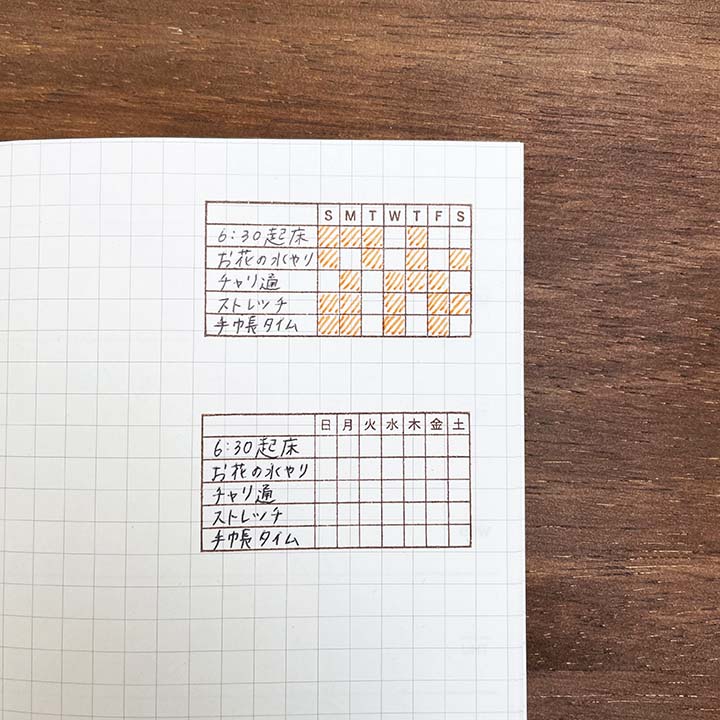 S M T W T F S
6:30起床
お花の水やり
チャリ通
ストレッチ
手帳タイム
日 月 火 水 木 金 土
6:30起床
お花の水やり
チャリ通
ストレッチ
手帳タイム